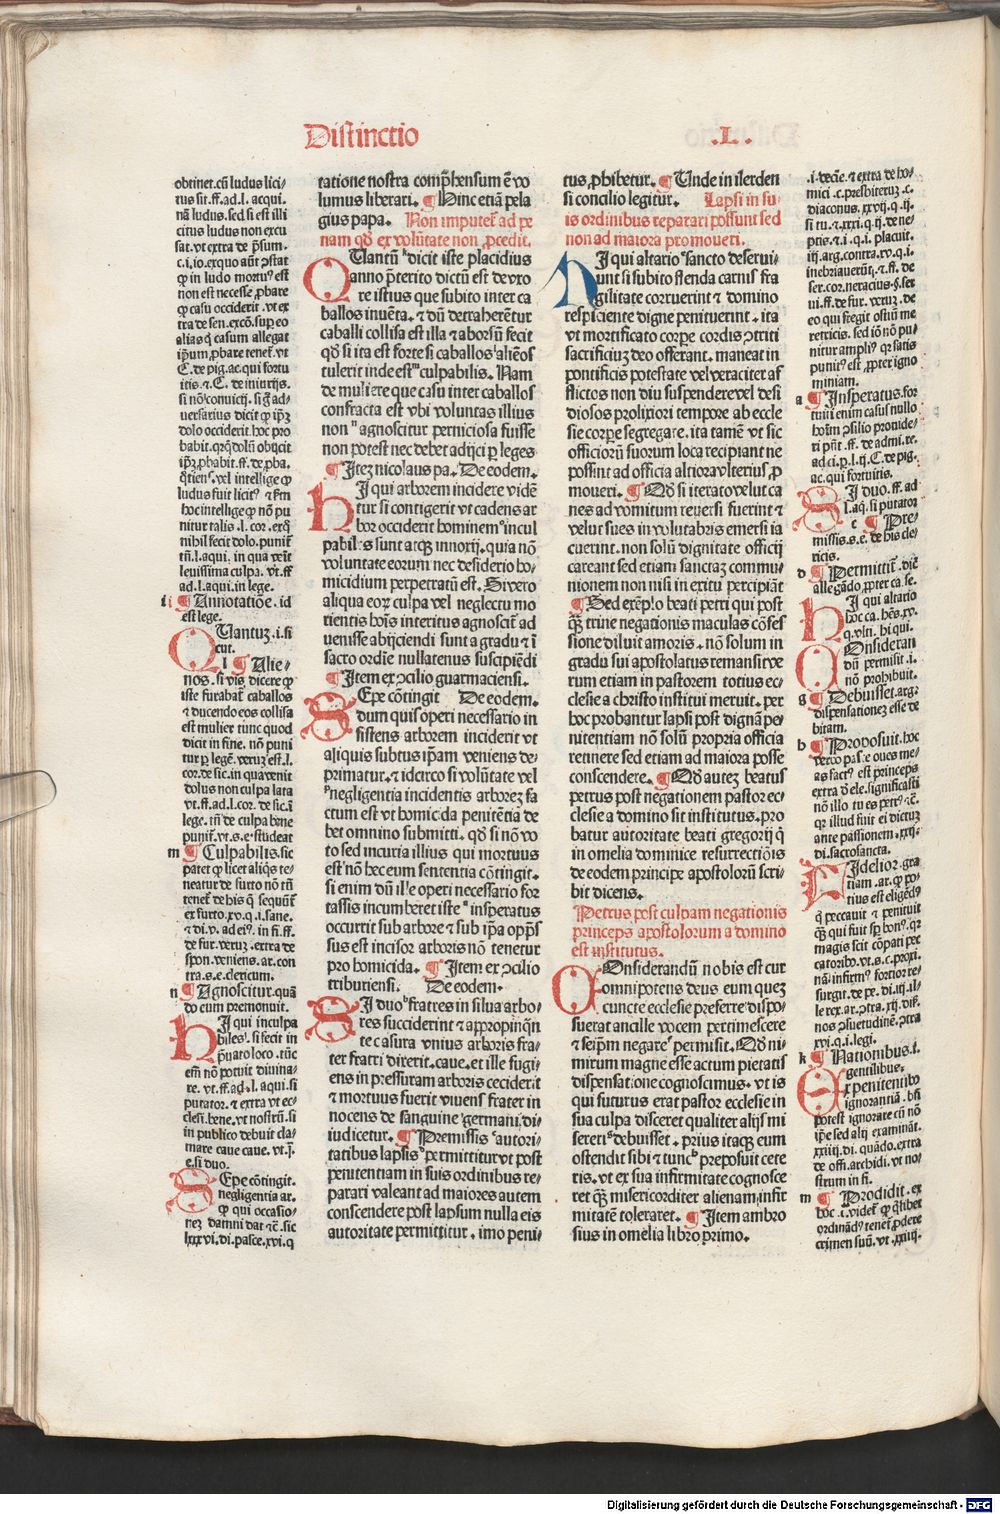 Distinctio .L.
obtinet.cū ludus lici/
tus sit.ff.ad.l. acqui.
nā ludus.sed si est illi
citus ludus non excu
sat.vt extra de p̄sum.
c.i.io.ex quo aūt ↄstat
ꝙ in ludo mortuꝰ est
non est necesse ꝓbare
ꝙ casu occiderit .vt ex
tra de sen.excō.suꝑ eo
alias ꝗ casum allegat
ip̄um ꝓbare tenet᷑.vt
C.de pig.ac.qui fortu
itis.⁊.C. de iniurijs.
uersarius dicit ꝙ ip̄ꝫ
dolo occiderit.hoc pro
ludus fuit licitꝰ ⁊ tn̄
hoc intellige ꝙ nō pu
nitur talis .l. cor. exq̄
nihil fecit dolo.punit᷑
tn̄.l.aqui. in qua venit
leuissima culpa. vt.ff
ad.l.aqui.in lege.
i Annotatiōe.id
est lege.
QUantuꝫ.i.si
cut.
l Alie/
nos.si vis dicere ꝙ
iste furabat᷑ caballos
⁊ ducendo eos collisa
est mulier tunc quod
dicit in fine. nō puni
tur ꝑ legē. veruꝫ est.l.
cor.de sic.in qua venit
dolus non culpa lata
vt.ff.ad.l.cor.de sic.ī
lege. tn̄.de culpa bene
punit᷑.vt.s.e.studeat
m Culpabilis.sic
patet ꝙ licet aliꝗs te/
neatur de furto nō tn̄
tenet᷑ de his ꝗ sequūt᷑
ex furto.xv.q.i.sane.
⁊ di.v.ad eiꝰ.in fi.ff.
de fur.veruꝫ.extra de
spon.veniens.ar.con
tra.s.e.clericum.
n Agnoscitur.quā
do eum premonuit.
HI qui inculpa
bilesˡ.si fecit in
pͥuato loco .tūc
em̄ nō potuit diuina/
re. vt.ff.ad.l.aqui.si
putator.⁊ extra vt ec/
clesi.bene.vt nostrū.si
in publico debuit cla/
mare caue caue. vt.j.
e.si duo.
SEpe cōtingit.
negligentia ar.
ꝙ qui occasio/
neꝫ damni dat ⁊c̄.sic
lxxxvi.di.pasce.xvi.q
tatione nostra comp̄hensum ē vo
lumus liberari. Hinc etiā pela
gius papa. Non imputet᷑ ad pe
nam qd̄ ex volūtate non ꝓcedit.
QUantūᵏ dicit iste placidius
anno p̄terito dictū est de vxo
re istius que subito inter ca
ballos inuēta.⁊ dū detraherētur
caballi collisa est illa ⁊ aborsū fecit
qd̄ si ita est forte si caballosˡ aliēos
tulerit inde estᵐ culpabilis. Nam
de muliere que casu inter caballos
confracta est vbi voluntas illius
nonⁿ agnoscitur perniciosa fuisse
non potest nec debet adijci ꝑ leges
Iteꝫ nicolaus pa. De eodem.
HI qui arborem incidere vidē
tur si contigerit vt cadens ar
bor occiderit hominemᵒ incul
pabiles sunt atqꝫ innoxij. quia nō
voluntate eorum nec desiderio ho/
micidium perpetratū est. Si vero
aliqua eoꝝ culpa vel neglectu mo
rientis hoīs interitus agnoscit᷑ ad
uenisse abijciendi sunt a gradu ⁊ ī
sacro ordīe nullatenus suscipiēdi
Item ex ↄcilio guarmaciensi.
SEpe cōtingit De eodem.
dum quis operi necessario in
sistens arborem inciderit vt
aliquis subtus ip̄am veniens de/
primatur.⁊ idcirco si volūtate vel
ᵖnegligentia incidentis arboreꝫ fa
ctum est vt homicida penitētia de
bet omnino submitti. qd̄ si nō vo
to sed incuria illius qui mortuus
est nō hec eum sententia cōtingit.
si enim dū ille operi necessario for
tassis incumberet iste insperatus
occurrit sub arbore ⁊ sub ip̄a opp̄s
sus est incisor arboris nō tenetur
pro homicida. Item ex ↄcilio
triburiensi. De eodem.
SI duoᵇ fratres in silua arbo/
res succiderint ⁊ appropinq̄n
te casura vnius arboris fra/
ter fratri dixerit.caue.⁊ ille fugi/
ens in pressuram arboris ceciderit
⁊ mortuus fuerit viuens frater in
nocens de sanguine germani di/
iudicetur. Premissisᶜ autori/
tatibus lapsis permittitur vt post
penitentiam in suis ordinibus re/
parari valeant ad maiores autem
conscendere post lapsum nulla eis
autoritate permittitur. imo peni/
tus ꝓhibetur. Unde in ilerden
si concilio legitur. Lapsi in su/
is ordinibus reparari possunt sed
non ad maiora promoueri.
HI qui altarioᵉ sancto deserui/
unt si subito flenda carnis fra
gilitate corruerint ⁊ domino
respiciente digne penituerint. ita
vt mortificato corpe cordis ↄtriti
sacrificiuꝫ deo offerant. maneat in
pontificis potestate vel veraciter af
flictos non diu suspendere vel desi
diosos prolixiori tempore ab eccle
sie corpe segregare. ita tamē vt sic
officiorū suorum loca recipiant ne
possint ad officia altiora vlterius ꝓ
moueri. Qd̄ si iterato velut ca
nes ad vomitum reuersi fuerint ⁊
velut sues in volutabris emersi ia
cuerint. non solū dignitate officij
careant sed etiam sanctaꝫ commu/
nionem non nisi in exitu percipiāt
Sed exēplo beati petri qui post
ꝙ̄ trine negationis maculas cōfes
sione diluit amoris. nō solum in
gradu sui apostolatus remansit ve
rum etiam in pastorem totius ec/
clesie a christo institui meruit. per
hoc probantur lapsi post dignā pe/
nitentiam nō solū propria officia
retinere sed etiam ad maiora posse
conscendere. Qd̄ autez beatus
petrus post negationem pastor ec/
clesie a domino sit institutus. pro
batur autoritate beati gregorij ꝗ
in omelia dominice resurrectiōis
de eodem principe apostolorū scri/
bit dicens.
Petrus post culpam negationis
princeps apostolorum a domino
est institutus.
COnsiderandū nobis est cur
omnipotens deus eum quez
cuncte ecclesie preferre dispo/
suerat ancille vocem pertimescere
⁊ seip̄m negareᶠ permisit. Qd̄ ni/
mirum magne esse actum pietatis
dispensatione cognoscimus. vt is
qui futurus erat pastor ecclesie in
sua culpa disceret qualiter alijs mi
sereriᵍ debuisset. prius itaqꝫ eum
ostendit sibi ⁊ tuncʰ preposuit cete
ris. vt ex sua infirmitate cognosce
ret ꝙ̄ misericorditer alienam infir
mitatē toleraret. Item ambro
sius in omelia libro primo.
.i.decīe.⁊ extra de ho/
mici.c.presbiteruꝫ.c.
diaconus.xxvij.q.ij.
si tu.⁊.xxxi.q.ij.de ne/
ptis.⁊.i.q.i. placuit.
iij.arg.contra.xv.q.i.
ser.cor.neracius.§.ser
ui.ff.de fur. veruꝫ. de
eo qui fregit ostiū me
retricis. sed iō nō pu/
nitur ampliꝰ qꝛ satis
punitꝰ est ꝓpter igno
miniam.
a Insperatus.for
tuiti enim casus nullo
hoīm ↄsilio prouide/
ri pn̄t .ff. de admi.re.
ad ci.p.l.ij.C.de pig.
ac.qui fortuitis.
SI duo.ff.ad
l.aq̄.si putator
c Pre/
missis.s.e. de his cle/
ricis.
d Permittit᷑. diē
allegādo ꝓpter ca.se.
HI qui altario
hoc ca.habēs.xv.
q.vlti. hi qui.
COnsideran
dū permisit.i.
non prohibuit.
g Debuisset.arg.
dispensationeꝫ esse de
bitam.
h Proposuit.hoc
verbo pasce oues me/
as factꝰ est princeps
extra ð ele.significasti
nō illo tu es petrꝰ ⁊c̄.
qꝛ illud fuit ei dictuꝫ
ante passionem.xxij.
di.sacrosancta.
FIdelior gra
tiam.ar.ꝙ po/
tius est eligēdꝰ
ꝗ peccauit ⁊ penituit
ꝙ̄ qui fuit sꝑ bonꝰ.qꝛ
magis scit cōpati pec
catoribꝰ.vt.s.c.proxi.
nā infirmꝰ fortior re/
surgit.de pe.di.iij.il/
le rex.ar.ↄtra.xij.dist.
nos ↄsuetudinē.ↄtra
xvi.q.i.legi.
k Nationibus.i.
gentilibus.
EX penitentibꝰ
ignorantiā.hͦ si
potest ignorate cū nō
ip̄e sed alij examināt.
xxiij.di. quādo.extra
de offi.archidi. vt no/
strum in fi.
m Prodidit.ex
hoc .i.videt᷑ ꝙ ꝗlibet
ordinādꝰ tenet᷑ ꝓdere
crimen suū. vt .xxiij.
Digitalisierung gefördert durch die Deutsche Forschungsgemeinschaft - DFG